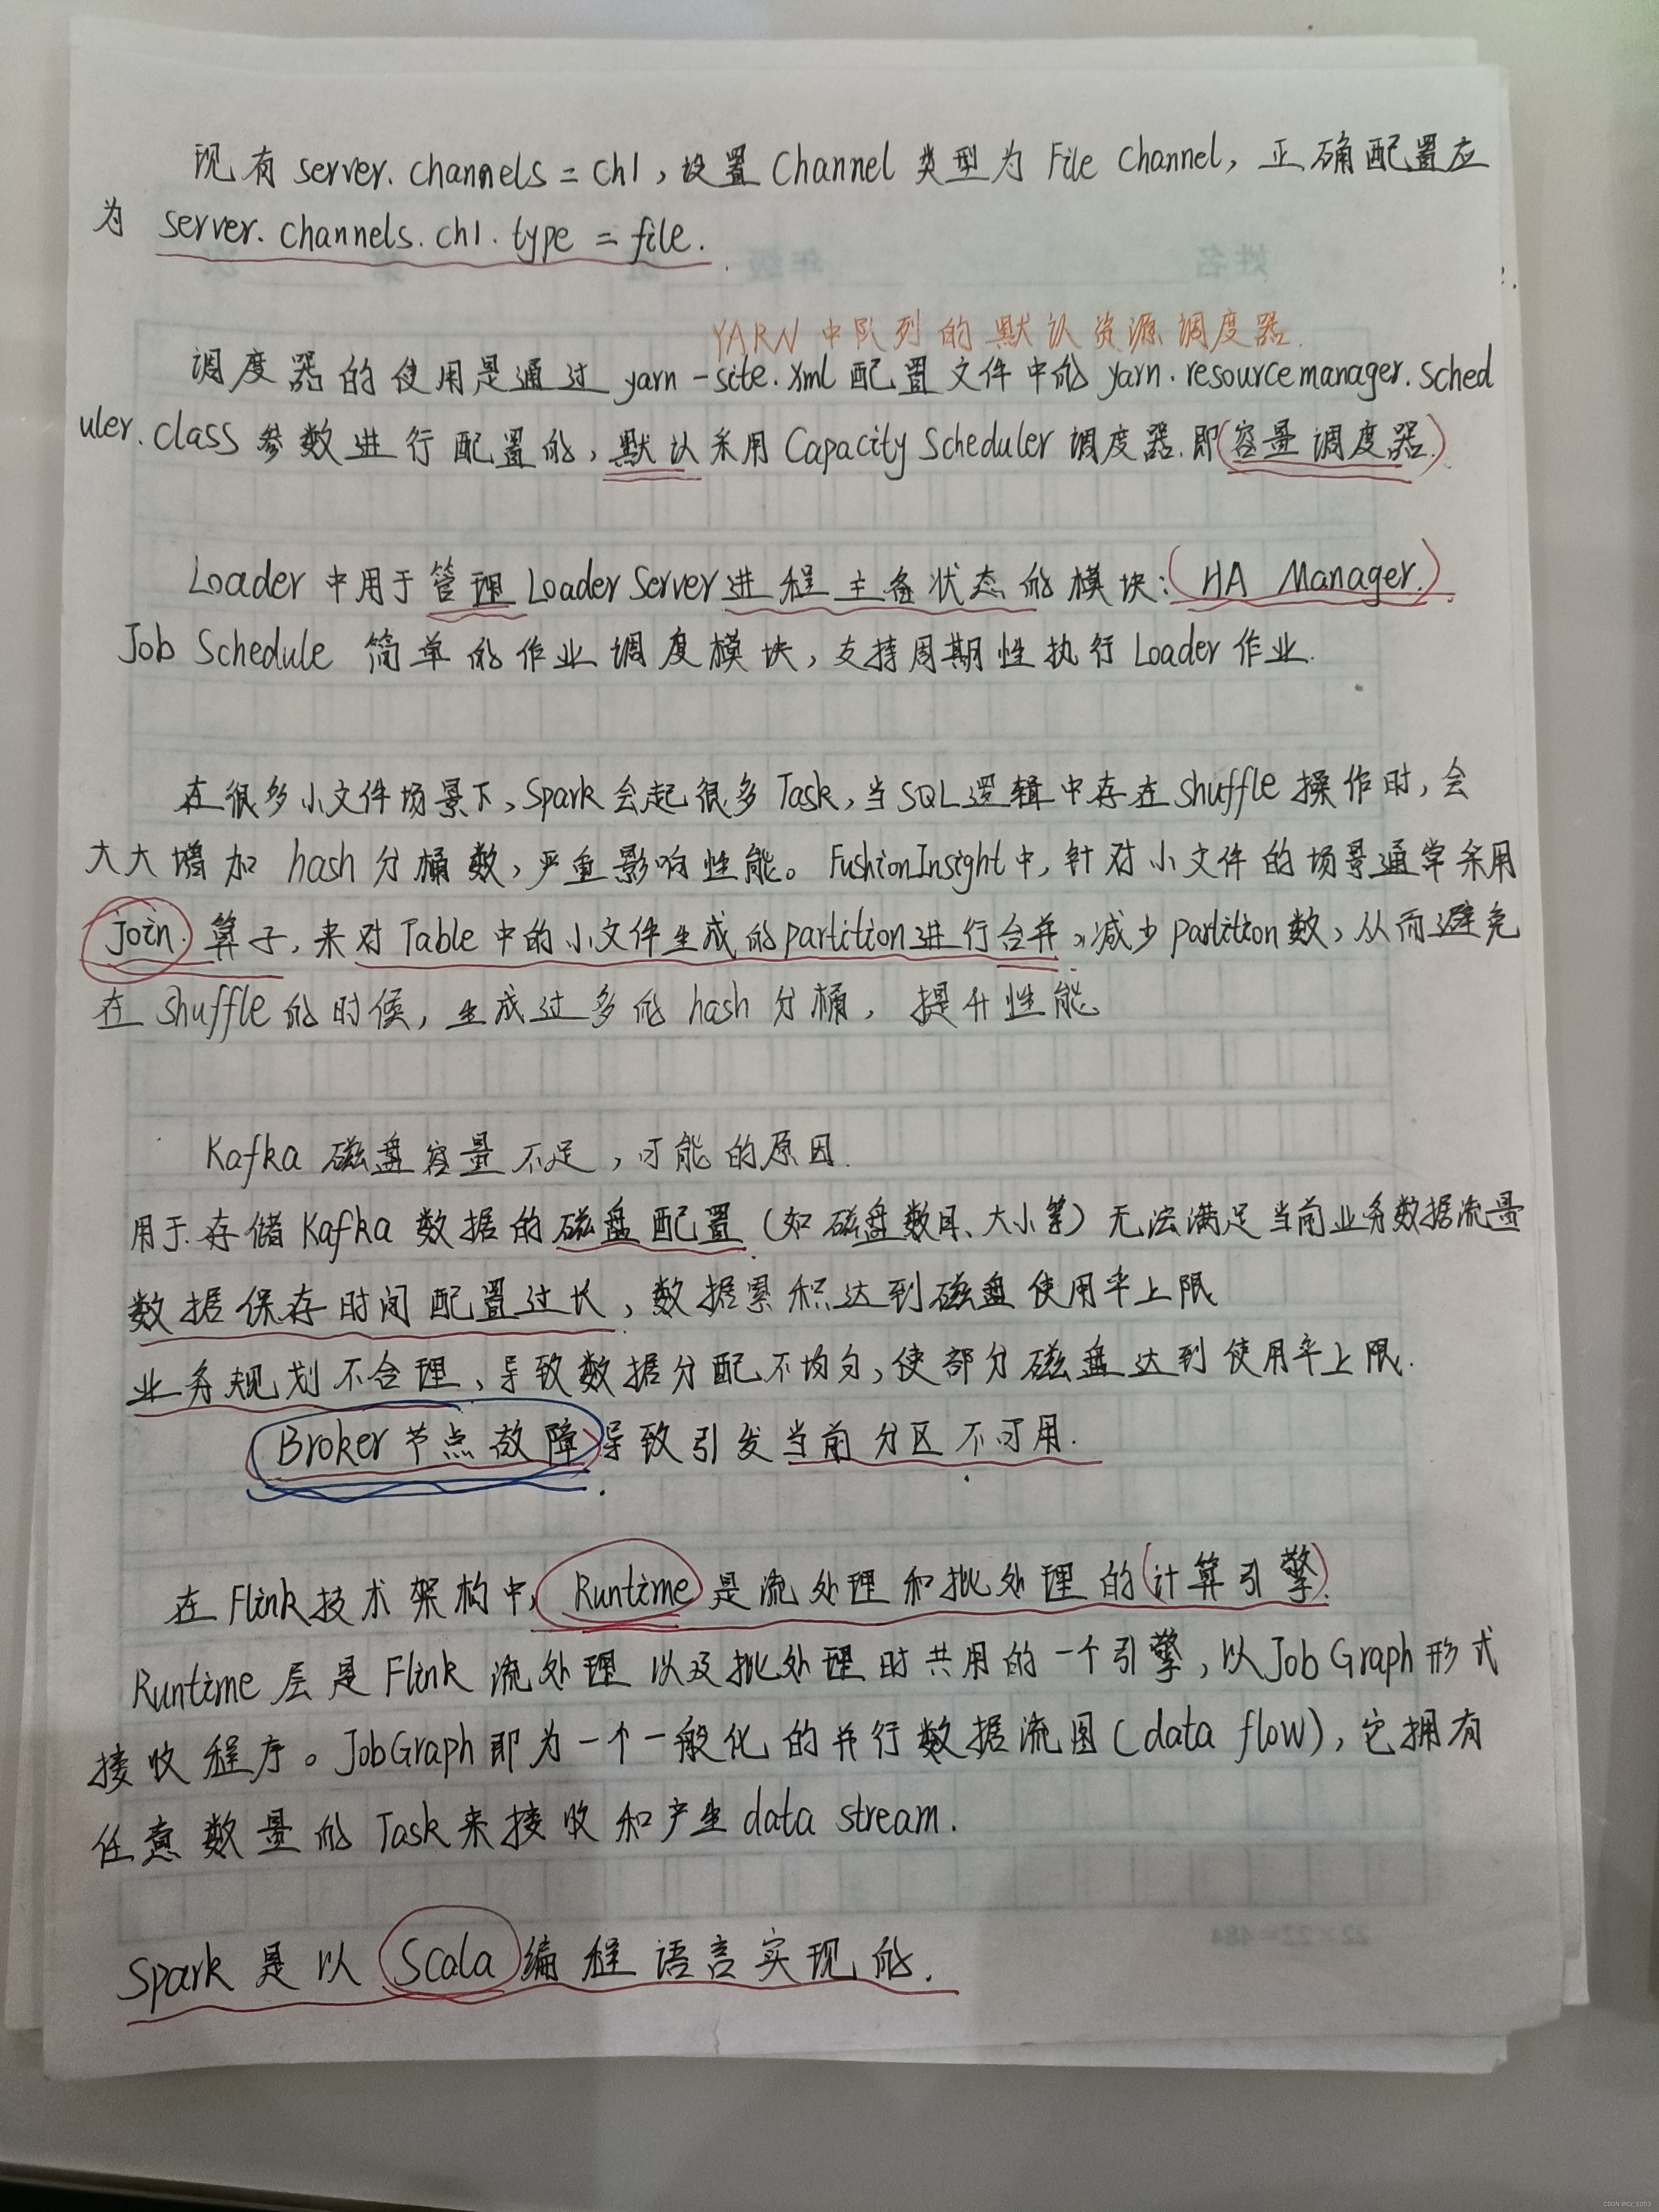 现有 server.channels = ch1，设置 Channel 类型为 File Channel，正确配置应
为 server.channels.ch1.type = file.
YARN中队列的默认资源调度器.
调度器的使用是通过 yarn-site.xml 配置文件中的 yarn.resourcemanager.sched
uler.class 参数进行配置的，默认采用 Capacity Scheduler 调度器.即(容量调度器.)
Loader 中用于管理 Loader Server 进程主备状态的模块：(HA Manager.)
Job Schedule 简单的作业调度模块，支持周期性执行 Loader 作业.
在很多小文件场景下，Spark会起很多Task，当SQL逻辑中存在shuffle操作时，会
大大增加 hash 分桶数，严重影响性能。FushionInsight中，针对小文件的场景通常采用
join. 算子，来对 Table 中的小文件生成的partition进行合并，减少partition数，从而避免
在 shuffle 的时候，生成过多的 hash 分桶，提升性能
Kafka 磁盘容量不足，可能的原因.
用于.存储Kafka 数据的磁盘配置（如磁盘数目、大小等）无法满足当前业务数据流量
数据保存时间配置过长，数据累积达到磁盘使用率上限
业务规划不合理、导致数据分配不均匀，使部分磁盘达到使用率上限.
Broker节点故障导致引发当前分区不可用.
在Flink技术架构中，Runtime 是流处理和批处理的(计算引擎).
Runtime 层是 Flink 流处理以及批处理时共用的一个引擎，以JobGraph形式
接收程序。JobGraph即为一个一般化的并行数据流图(data flow)，它拥有
任意数量的 Task来接收和产生data stream.
Spark 是以 Scala 编程语言实现的.
姓名
年级
22×22=484